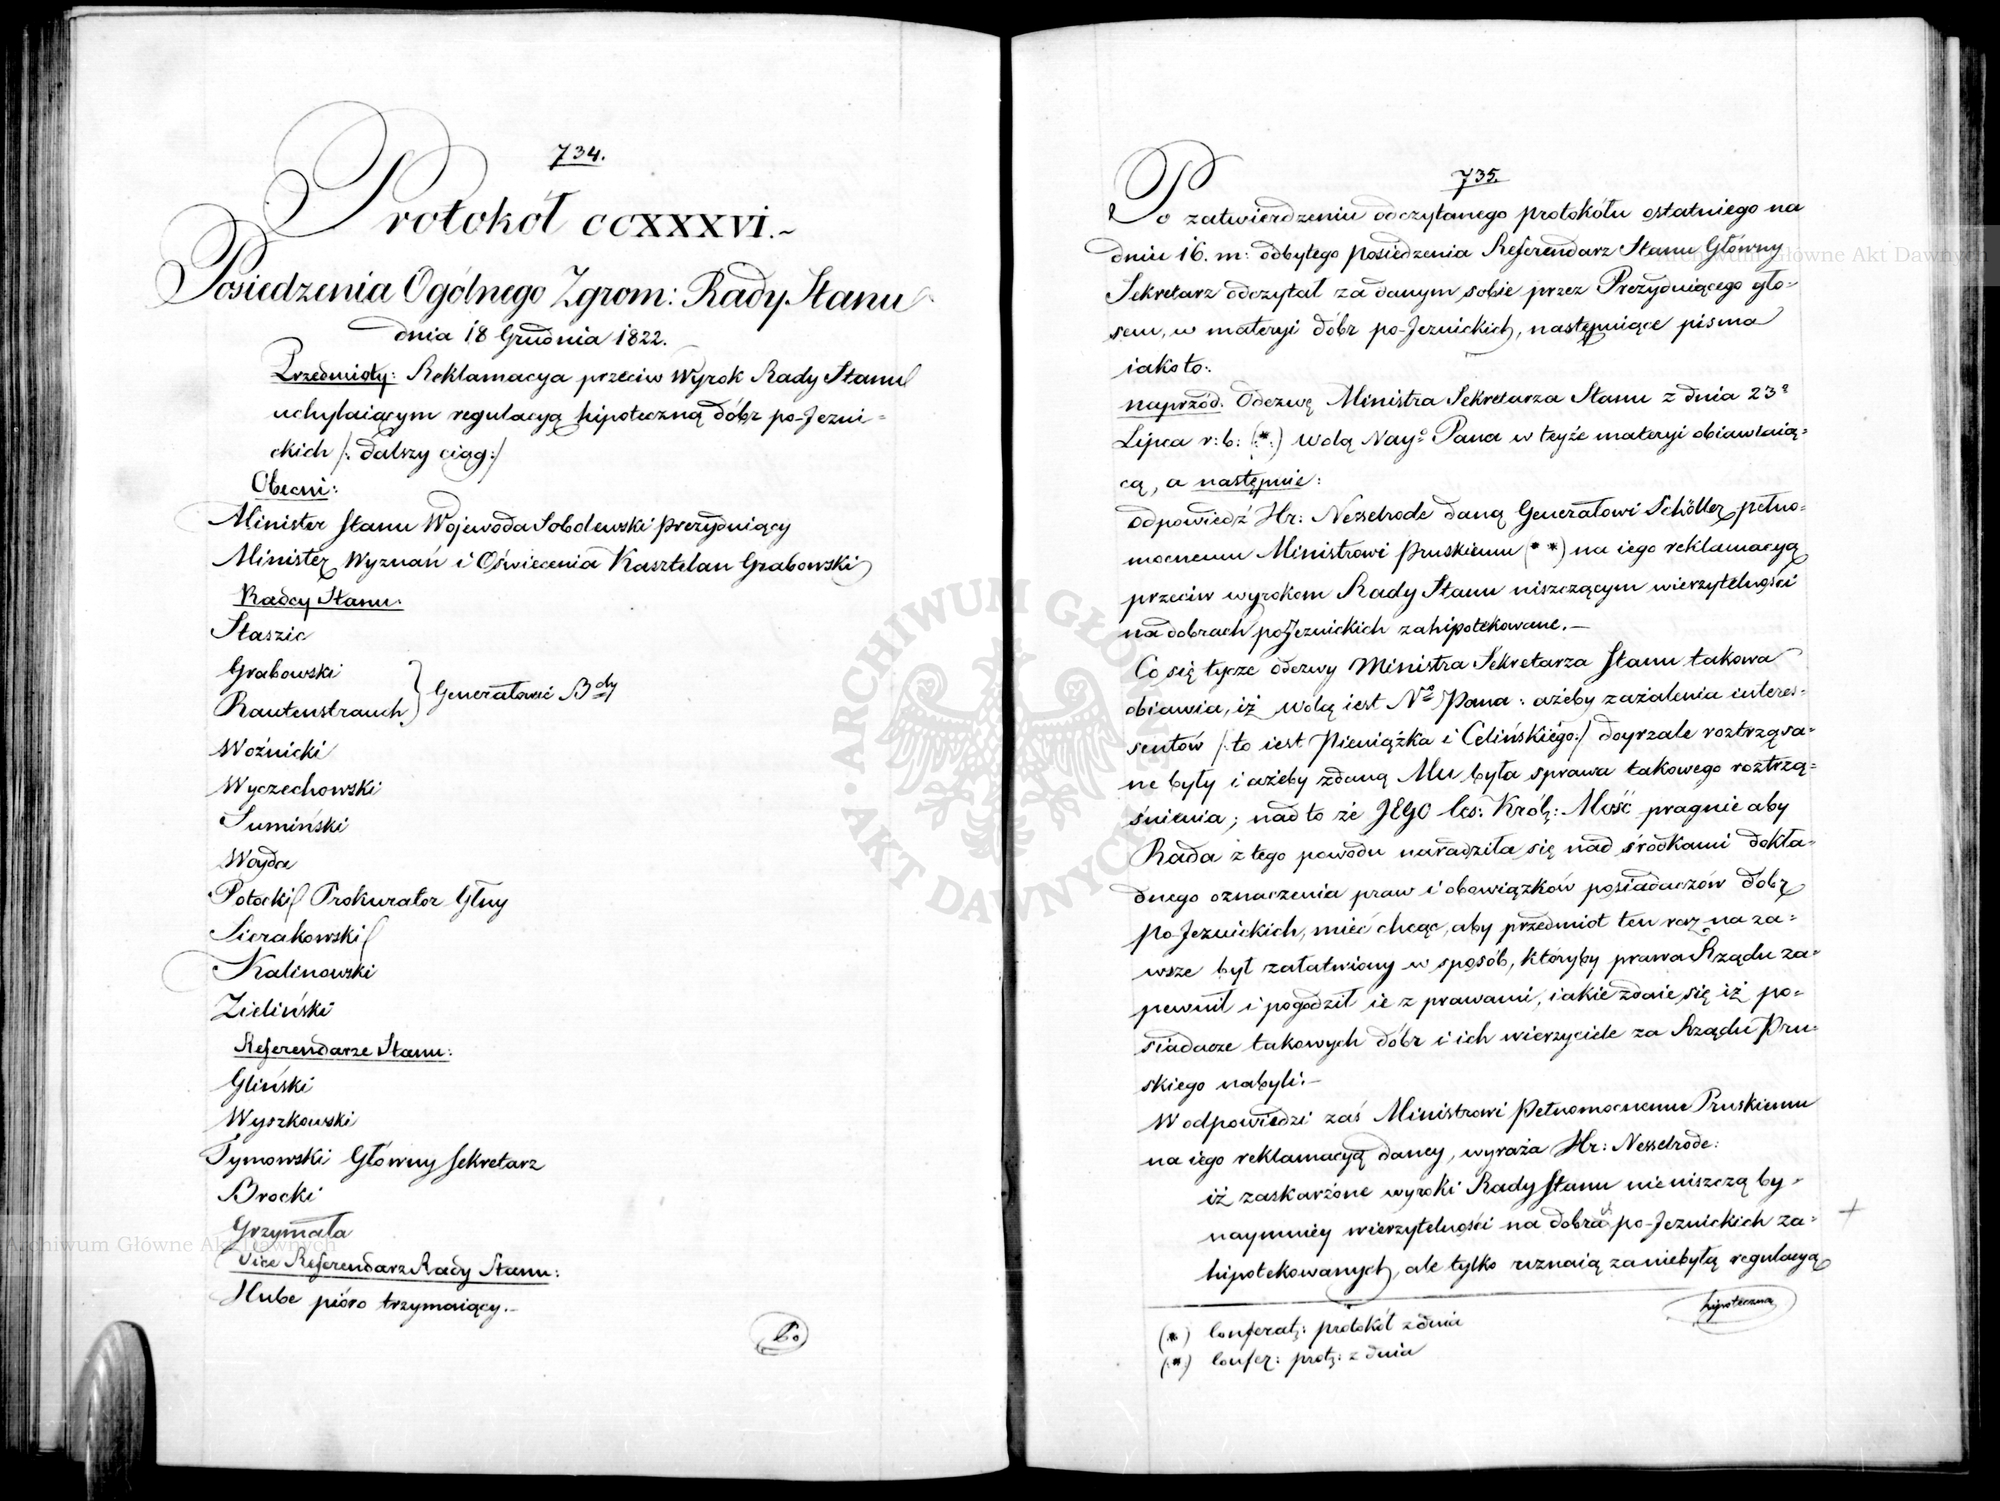 734.
Protokół CCXXXVI.~
Posiedzenia Ogólnego Zgrom: Rady Stanu
dnia 18 Grudnia 1822.
Przedmioty: Reklamacya przeciw Wyrok Rady Stanu
uchylaiącym regulacyą hipoteczną dóbr po-Jezui=
ckich /: dalszy ciąg:/
Obecni:
Minister Stanu Wojewoda Sobolewski prezyduiący
Minister Wyznań i Oświecenia Kasztelan Grabowski
Radcy Stanu:
Staszic
Grabowski
Rautenstrauch } Generałowie Bdy
Woźnicki
Wyczechowski
Sumiński
Woyda
Potocki Prokurator Głny
Sierakowski
Kalinowski
Zieliński
Referendarze Stanu:
Gliński
Wyszkowski
Tymowski Główny Sekretarz
Brocki
Grzymała
Vice Referendarz Rady Stanu:
Hube pióro trzymaiący.-
Po
735.
Po zatwierdzeniu odczytanego protokółu ostatniego na
dniu 16. m: odbytego posiedzenia Referendarz Stanu Główny
Sekretarz odczytał za danym sobie przez Prezyduiącego gło=
sem, w materyi dóbr po-Jezuickich, następuiące pisma
iako to:
naprzód. Odezwę Ministra Sekretarza Stanu z dnia 23º
Lipca r: b: (*) wolą Nayº Pana w teyże materyi obiawiaią=
cą, a następnie:
odpowiedź Hr: Nesselrode daną Generałowi Schöller pełno=
mocnemu Ministrowi Pruskiemu (* *) na iego reklamacyą
przeciw wyrokom Rady Stanu niszczącym wierzytelności
na dobrach poJezuickich zahipotekowane.-
Co się tycze odezwy Ministra Sekretarza Stanu takowa
obiawia, iż wolą iest Nº Pana: ażeby zażalenia interes=
sentów /: to iest Pieniążka i Celińskiego:/ doyrzale roztrząsa=
ne były i ażeby zdaną Mu była sprawa takowego roztrzą=
śnienia; nad to że JEGO Ces: Król: Mość pragnie aby
Rada z tego powodu naradziła się nad śródkami dokła=
dnego oznaczenia praw i obowiązków posiadaczów dóbr
po Jezuickich, mieć chcąc, aby przedmiot ten raz na za=
wsze był załatwiony w sposób, któryby prawa Rządu za=
pewnił i pogodził ie z prawami, iakie zdaie się iż po=
siadacze takowych dóbr i ich wierzyciele za Rządu Pru=
skiego nabyli.-
W odpowiedzi zaś Ministrowi Pełnomocnemu Pruskiemu
na iego reklamacyą daney, wyraża Hr: Nesselrode:
iż zaskarżone wyroki Rady Stanu nie niszczą by=
naymniey wierzytelności na dobrach po-Jezuickich za=
hipotekowanych, ale tylko uznaią za niebyłą regulacyą
hipoteczną
(*) Conferat: protokół z dnia
(**) Confer: prot: z dnia
Archiwum Główne Akt Dawnych
Archiwum Główne Akt Dawnych
ARCHIWUM GŁÓWNE AKT DAWNYCH